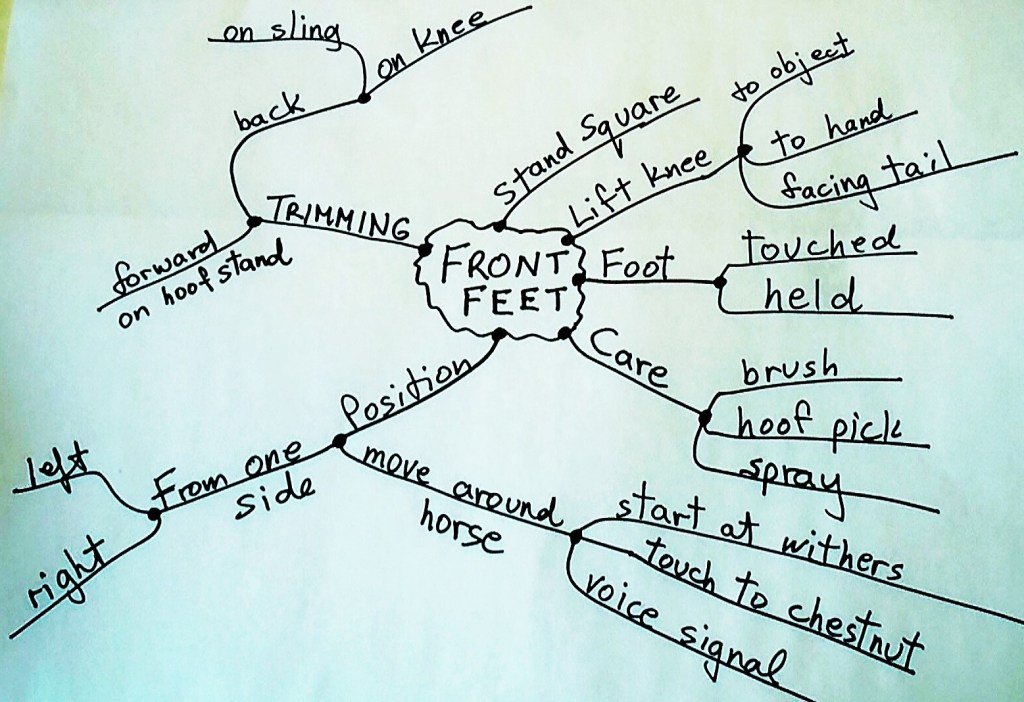 on sling
on Knee
back
TRIMMING
forward
on hoof stand
FRONT
FEET
Stand Square
Lift Knee
to object
to hand
facing tail
Foot
touched
held
Care
brush
hoof pick
spray
Position
From one
side
left
right
move around
horse
start at withers
touch to chestnut
voice signal